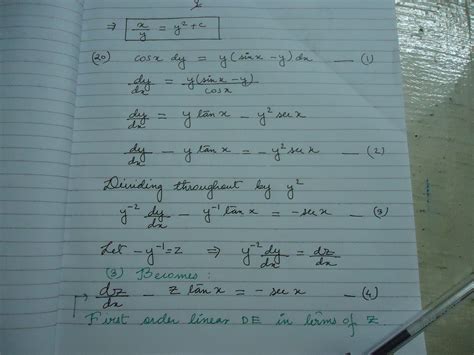 ⇒ x/y = y² + c
(20) cosx dy = y(sinx - y)dx — (1)
dy/dx = y(sinx - y)/cosx
dy/dx = y tanx - y² secx
dy/dx - y tanx = -y² secx — (2)
Dividing throughout by y²
y⁻² dy/dx - y⁻¹ tanx = -secx — (3)
Let -y⁻¹ = z ⇒ y⁻² dy/dx = dz/dx
(3) Becomes :
dz/dx - z tanx = -secx — (4)
First order linear DE in terms of z.